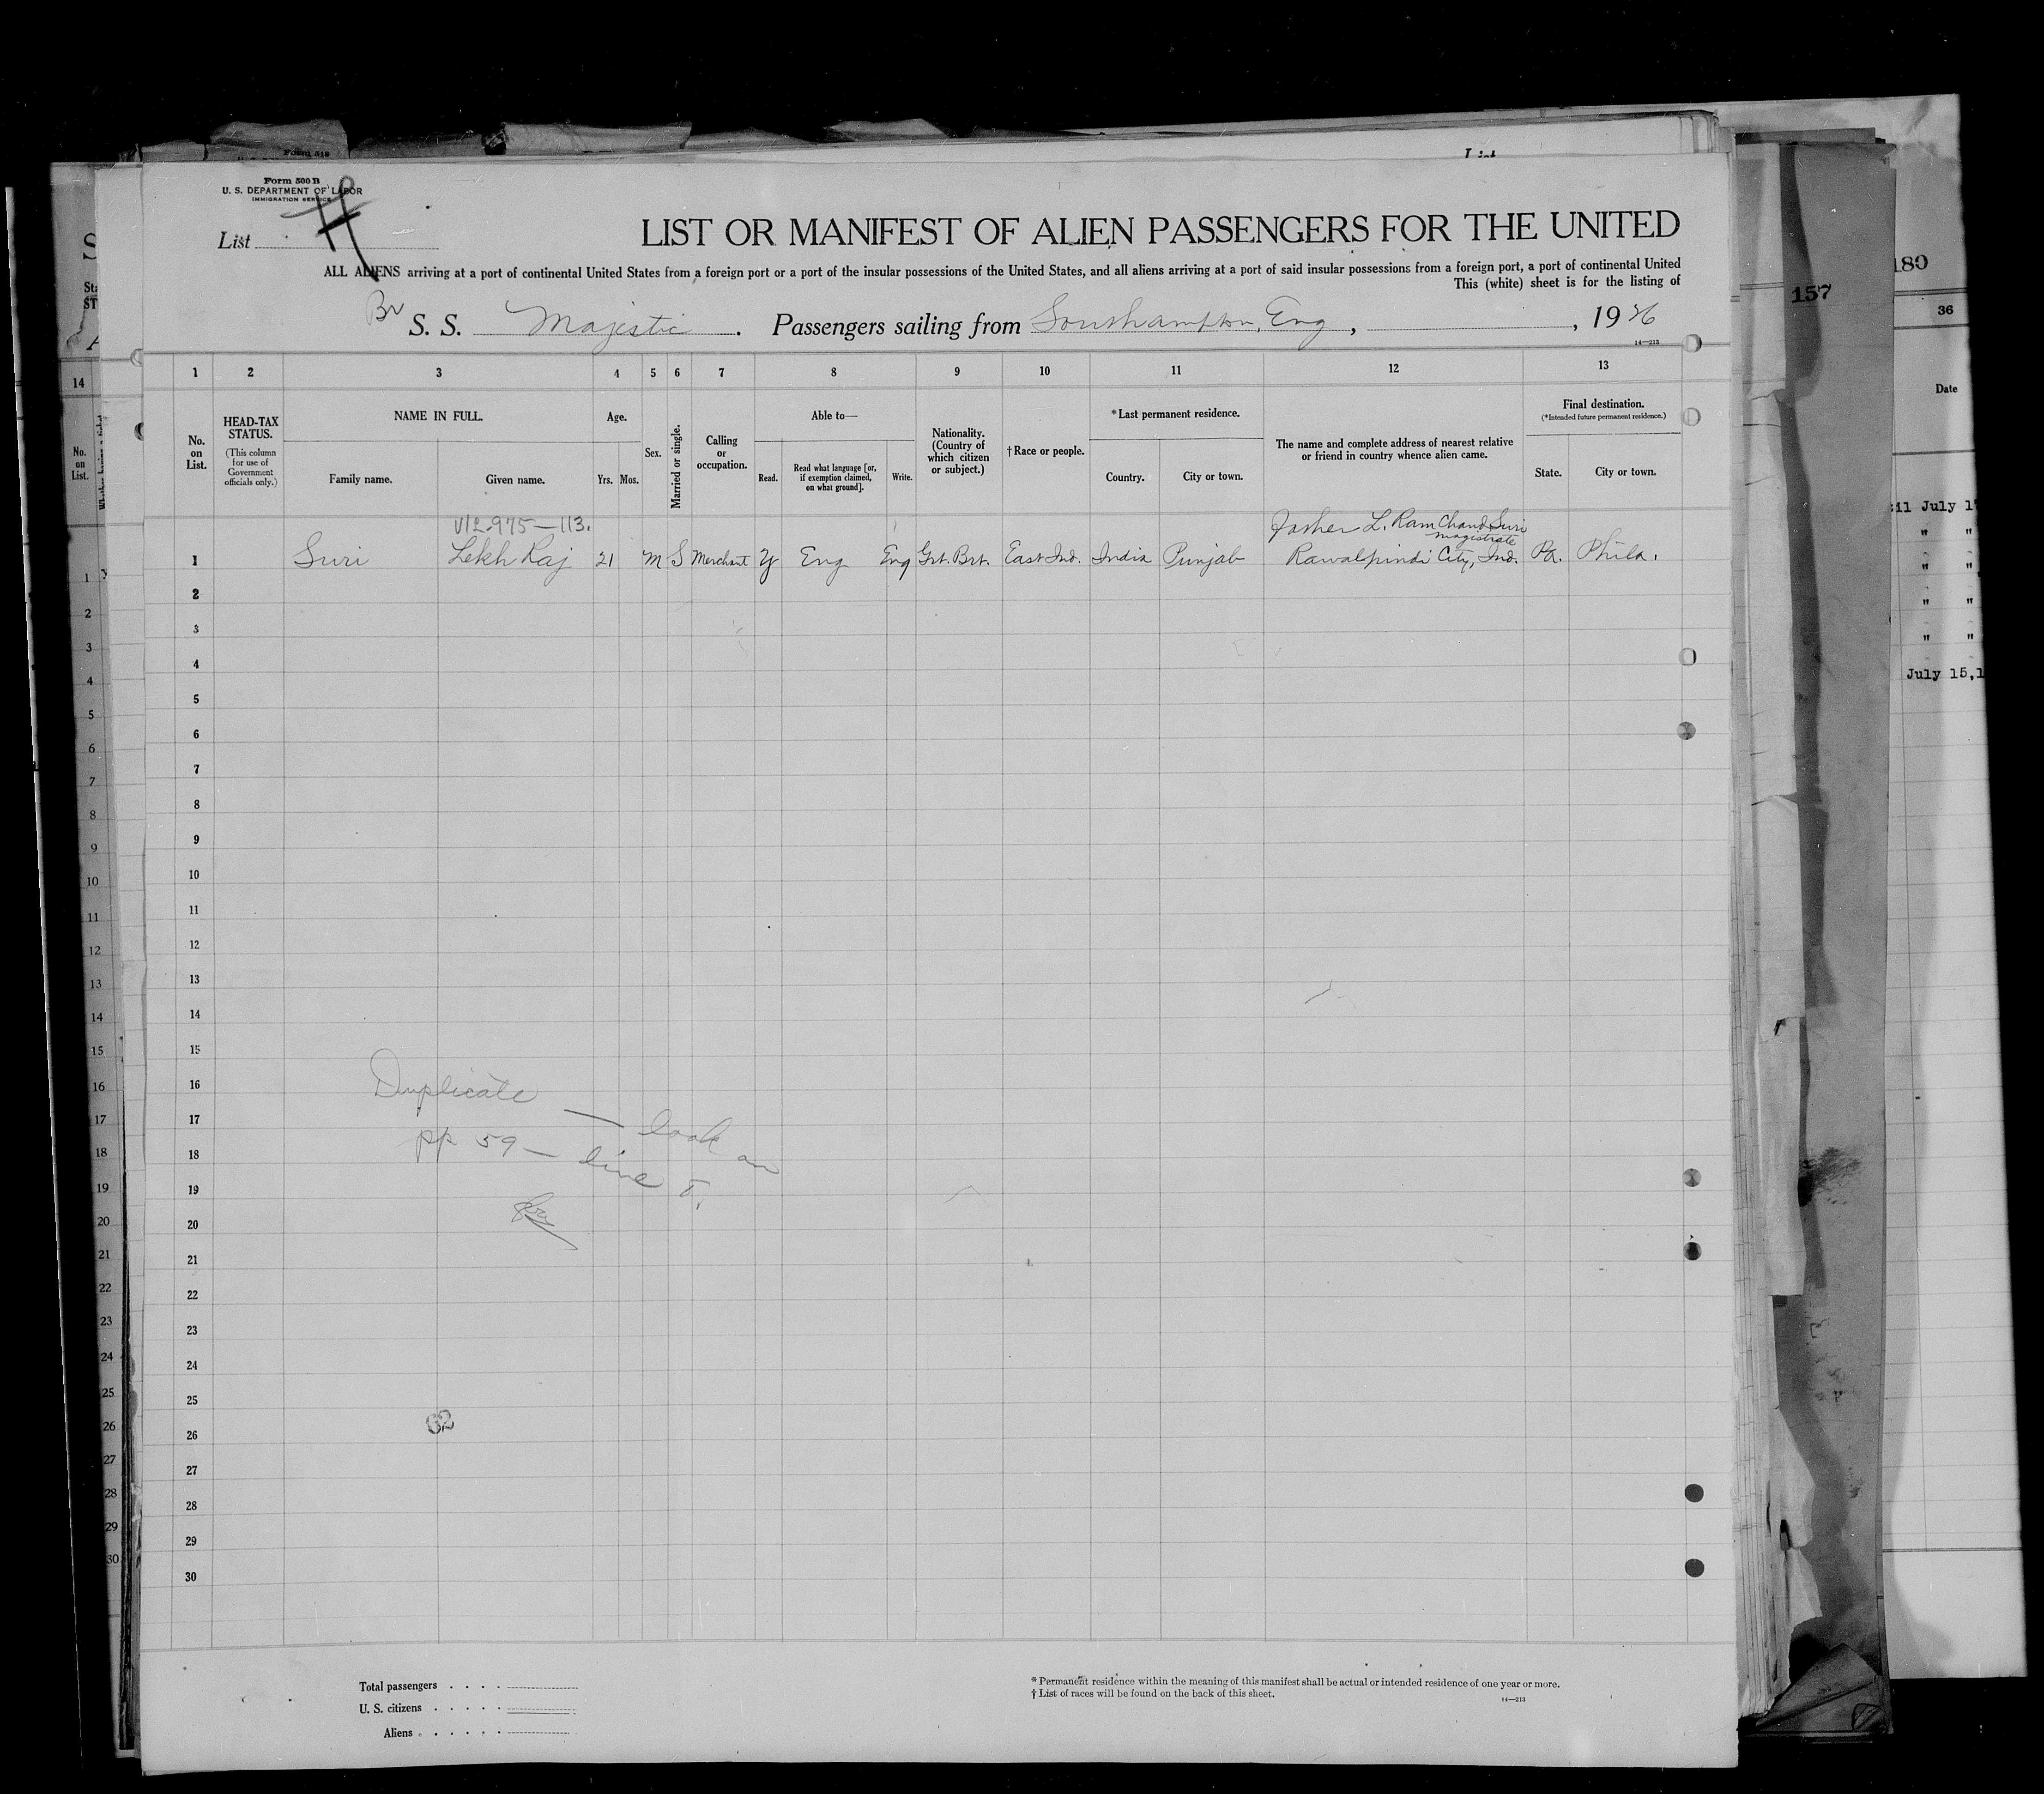 Form 500 B
U. S. DEPARTMENT OF LABOR
IMMIGRATION SERVICE
List
LIST OR MANIFEST OF ALIEN PASSENGERS FOR THE UNITED
ALL ALIENS arriving at a port of continental United States from a foreign port or a port of the insular possessions of the United States, and all aliens arriving at a port of said insular possessions from a foreign port, a port of continental United
This (white) sheet is for the listing of
Br S. S. Majestic. Passengers sailing from Southampton, Eng, , 1926
14—213
1 2 3 4 5 6 7 8 9 10 11 12 13
No. on List.
HEAD-TAX STATUS.
(This column for use of Government officials only.)
NAME IN FULL.
Family name. Given name.
Age.
Yrs. Mos.
Sex.
Married or single.
Calling or occupation.
Able to—
Read. Read what language [or, if exemption claimed, on what ground]. Write.
Nationality. (Country of which citizen or subject.)
† Race or people.
* Last permanent residence.
Country. City or town.
The name and complete address of nearest relative or friend in country whence alien came.
Final destination.
(*Intended future permanent residence.)
State. City or town.
V12-975—113.
Father L. Ram Chand Suri
magistrate
1 Suri Lekh Raj 21 M S Merchant Y Eng Eng Grt. Brt. East Ind. India Punjab Rawalpindi City, Ind. Pa. Phila.
2
3
4
5
6
7
8
9
10
11
12
13
14
15
16
17
18
19
20
21
22
23
24
25
26
27
28
29
30
Duplicate — look on
pp 59 — line 5,
62
Total passengers
U. S. citizens
Aliens
* Permanent residence within the meaning of this manifest shall be actual or intended residence of one year or more.
† List of races will be found on the back of this sheet.
14—213
14
No. on List.
1
2
3
4
5
6
7
8
9
10
11
12
13
14
15
16
17
18
19
20
21
22
23
24
25
26
27
28
29
30
157
180
36
Date
July 1
" "
" "
" "
" "
July 15,1